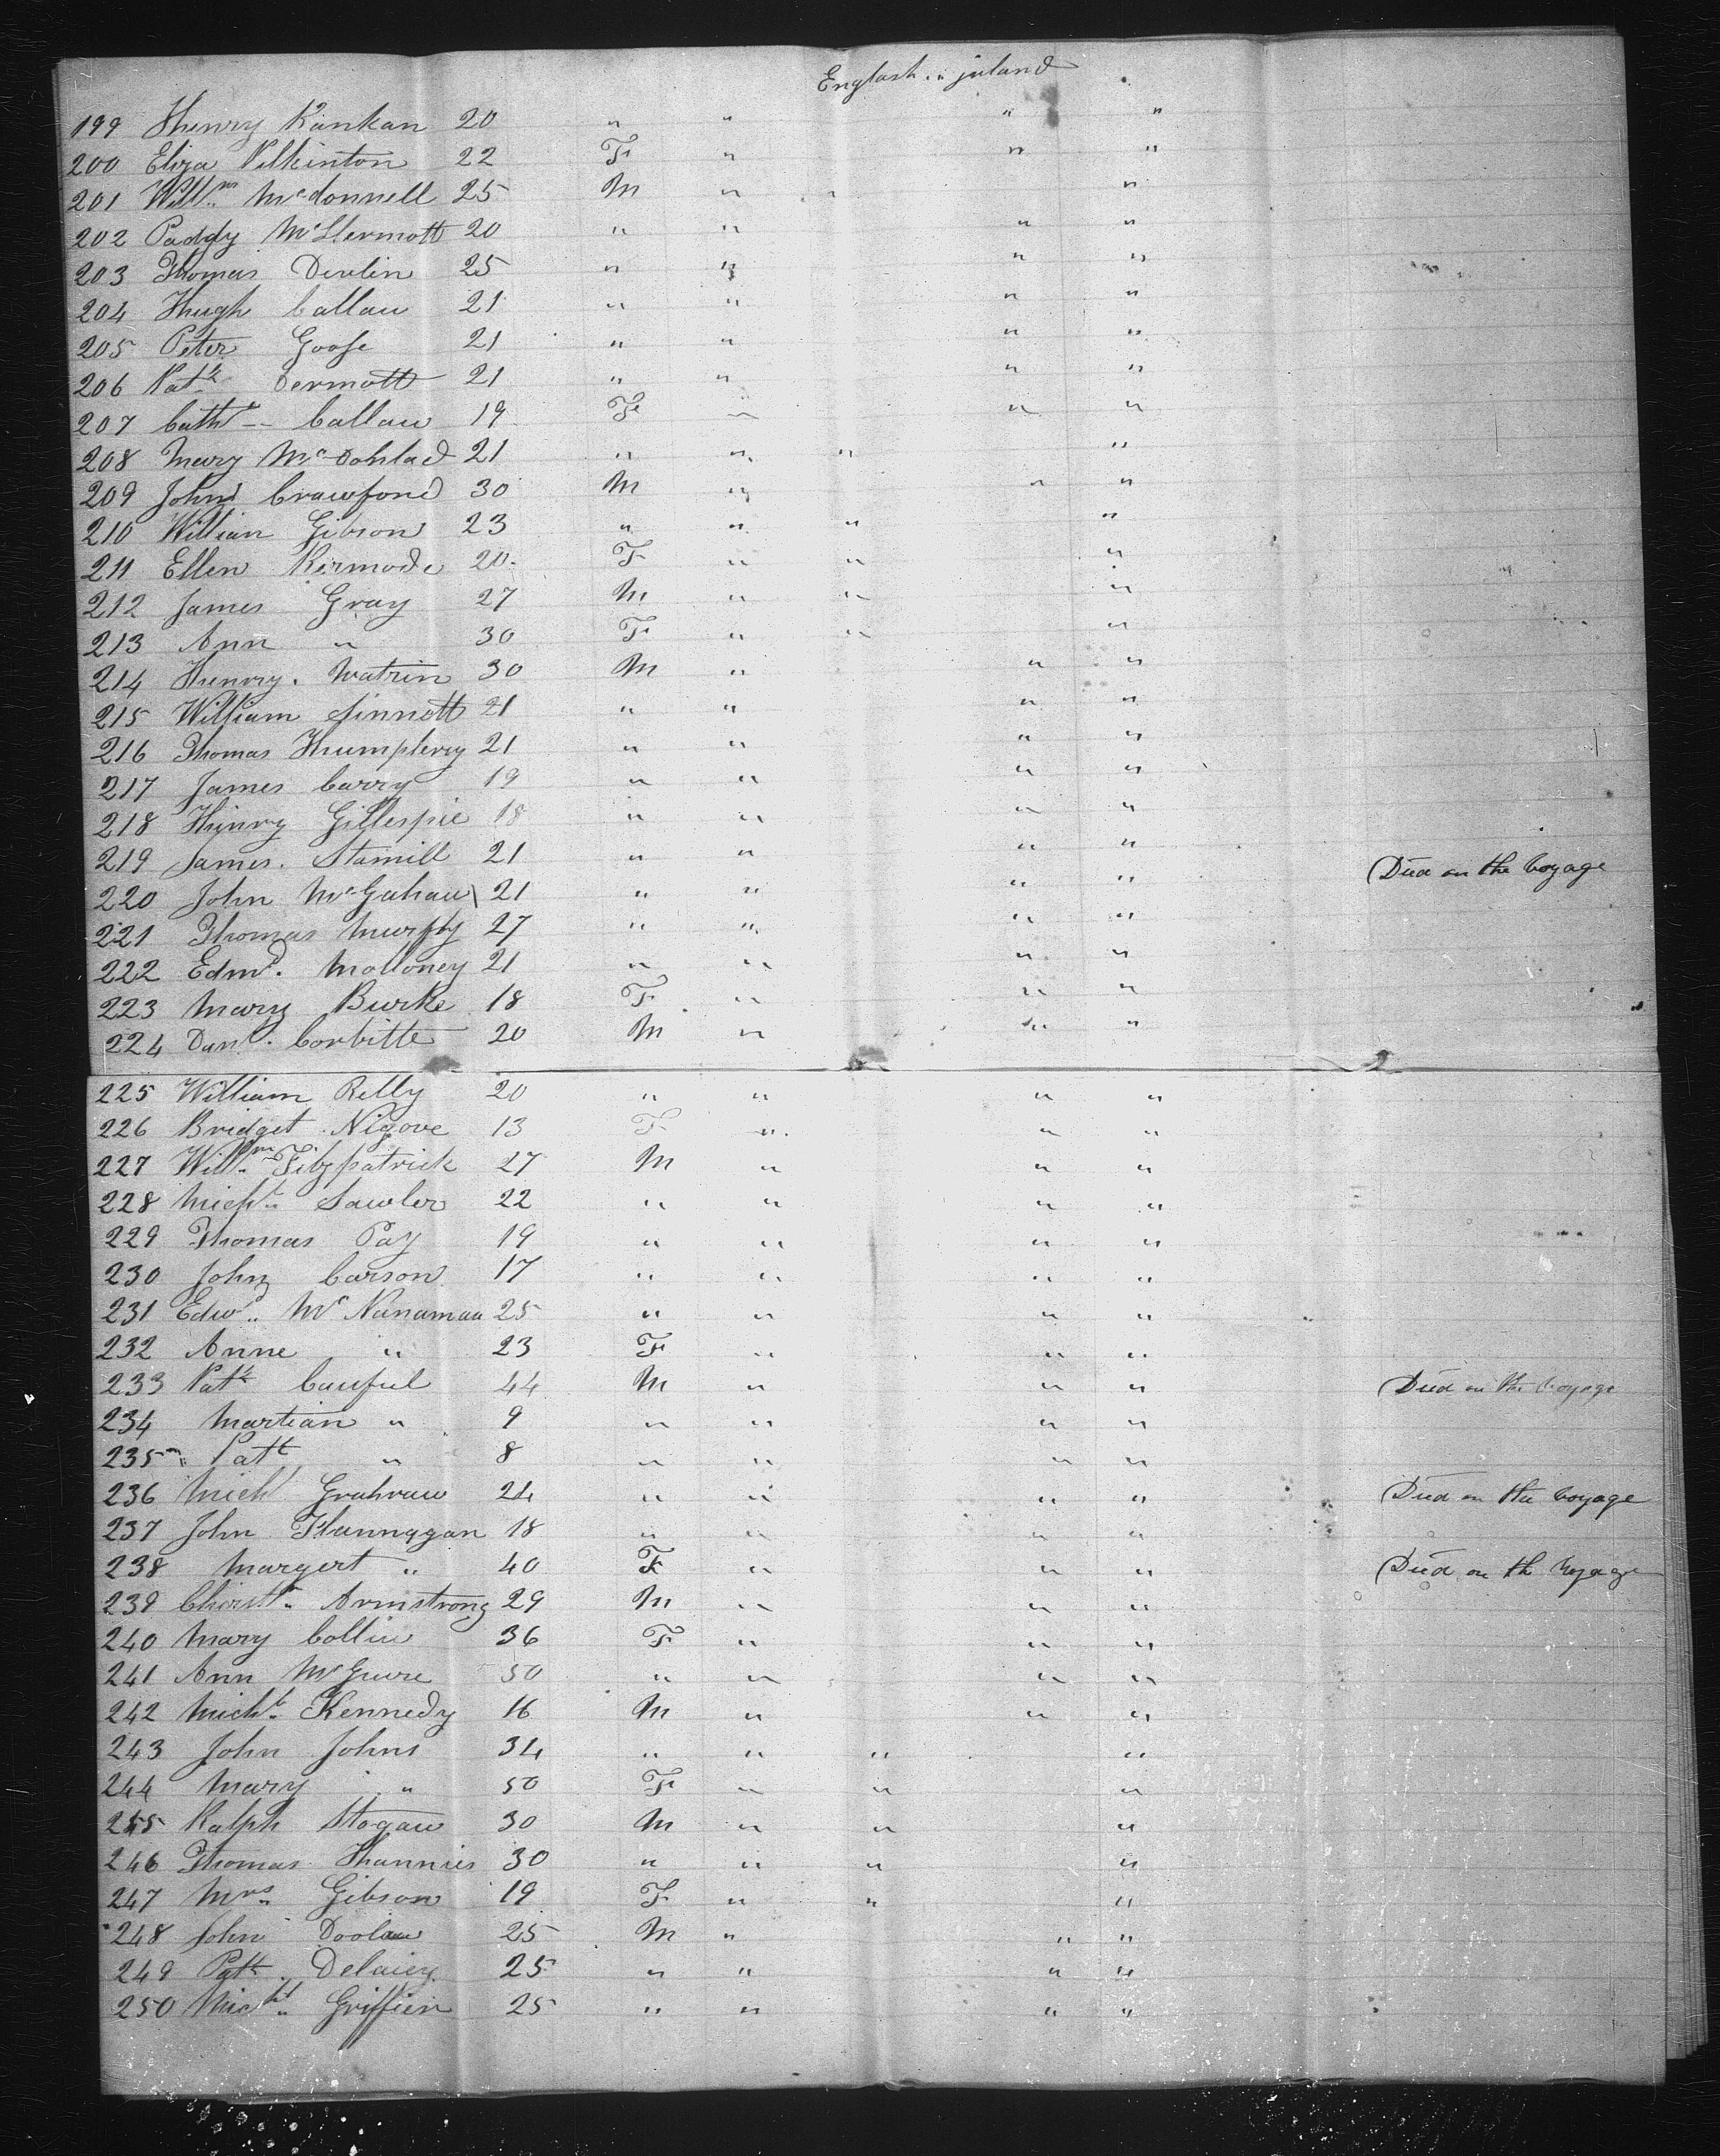 English " irland
199 Henry Kankan 20 " " " "
200 Eliza Pilkinton 22 F " " "
201 Willm Mcdonnell 25 M " " "
202 Paddy McDermott 20 " " " "
203 Thomas Devlin 25 " " " "
204 Hugh Callan 21 " " " "
205 Peter Goose 21 " " " "
206 Patk Dermott 21 " " " "
207 Cathe Callan 19 F " " "
208 Mary Mc 21 " " " "
209 John Crawford 30 M " " "
210 William Gibson 23 " " " "
211 Ellen Kermode 20 F " " "
212 James Gray 27 M " " "
213 Ann " 30 F " " "
214 Henry Watrin 30 M " " "
215 William Sinnott 21 " " " "
216 Thomas Humphrey 21 " " " "
217 James Carry 19 " " " "
218 Hinry Gillespie 18 " " " "
219 James Stamill 21 " " " "
220 John McGahan 21 " " " " Died on the Voyage
221 Thomas Murphy 27 " " " "
222 Edmd Molloney 21 " " " "
223 Mary Burke 18 F " " "
224 Danl Corbitte 20 M " " "
225 William Relly 20 " " " "
226 Bridget Nigove 13 F " " "
227 Willm Fitzpatrick 27 M " " "
228 Michl Sawler 22 " " " "
229 Thomas Pay 19 " " " "
230 John Carson 17 " " " "
231 Edwd Mc Nanamaa 25 " " " "
232 Anne " 23 F " " "
233 Patk Cauful 44 M " " " Died on the Voyage
234 Martian " 9 " " " "
235 Patk " 8 " " " "
236 Michl Grahraw 24 " " " " Died on the Voyage
237 John Flannagan 18 " " " "
238 Margert " 40 F " " " Died on the Voyage
239 Christr Armstrong 29 M " " "
240 Mary Collin 36 F " " "
241 Ann McGuire 50 " " " "
242 Michl Kennedy 16 M " " "
243 John Johns 34 " " " "
244 Mary " 50 F " " "
245 Ralph Hogan 30 M " " "
246 Thomas Hannies 30 " " " "
247 Mrs Gibson 19 F " " "
248 John Doolan 25 M " " "
249 Patk Delaiey 25 " " " "
250 Michl Griffiin 25 " " " "